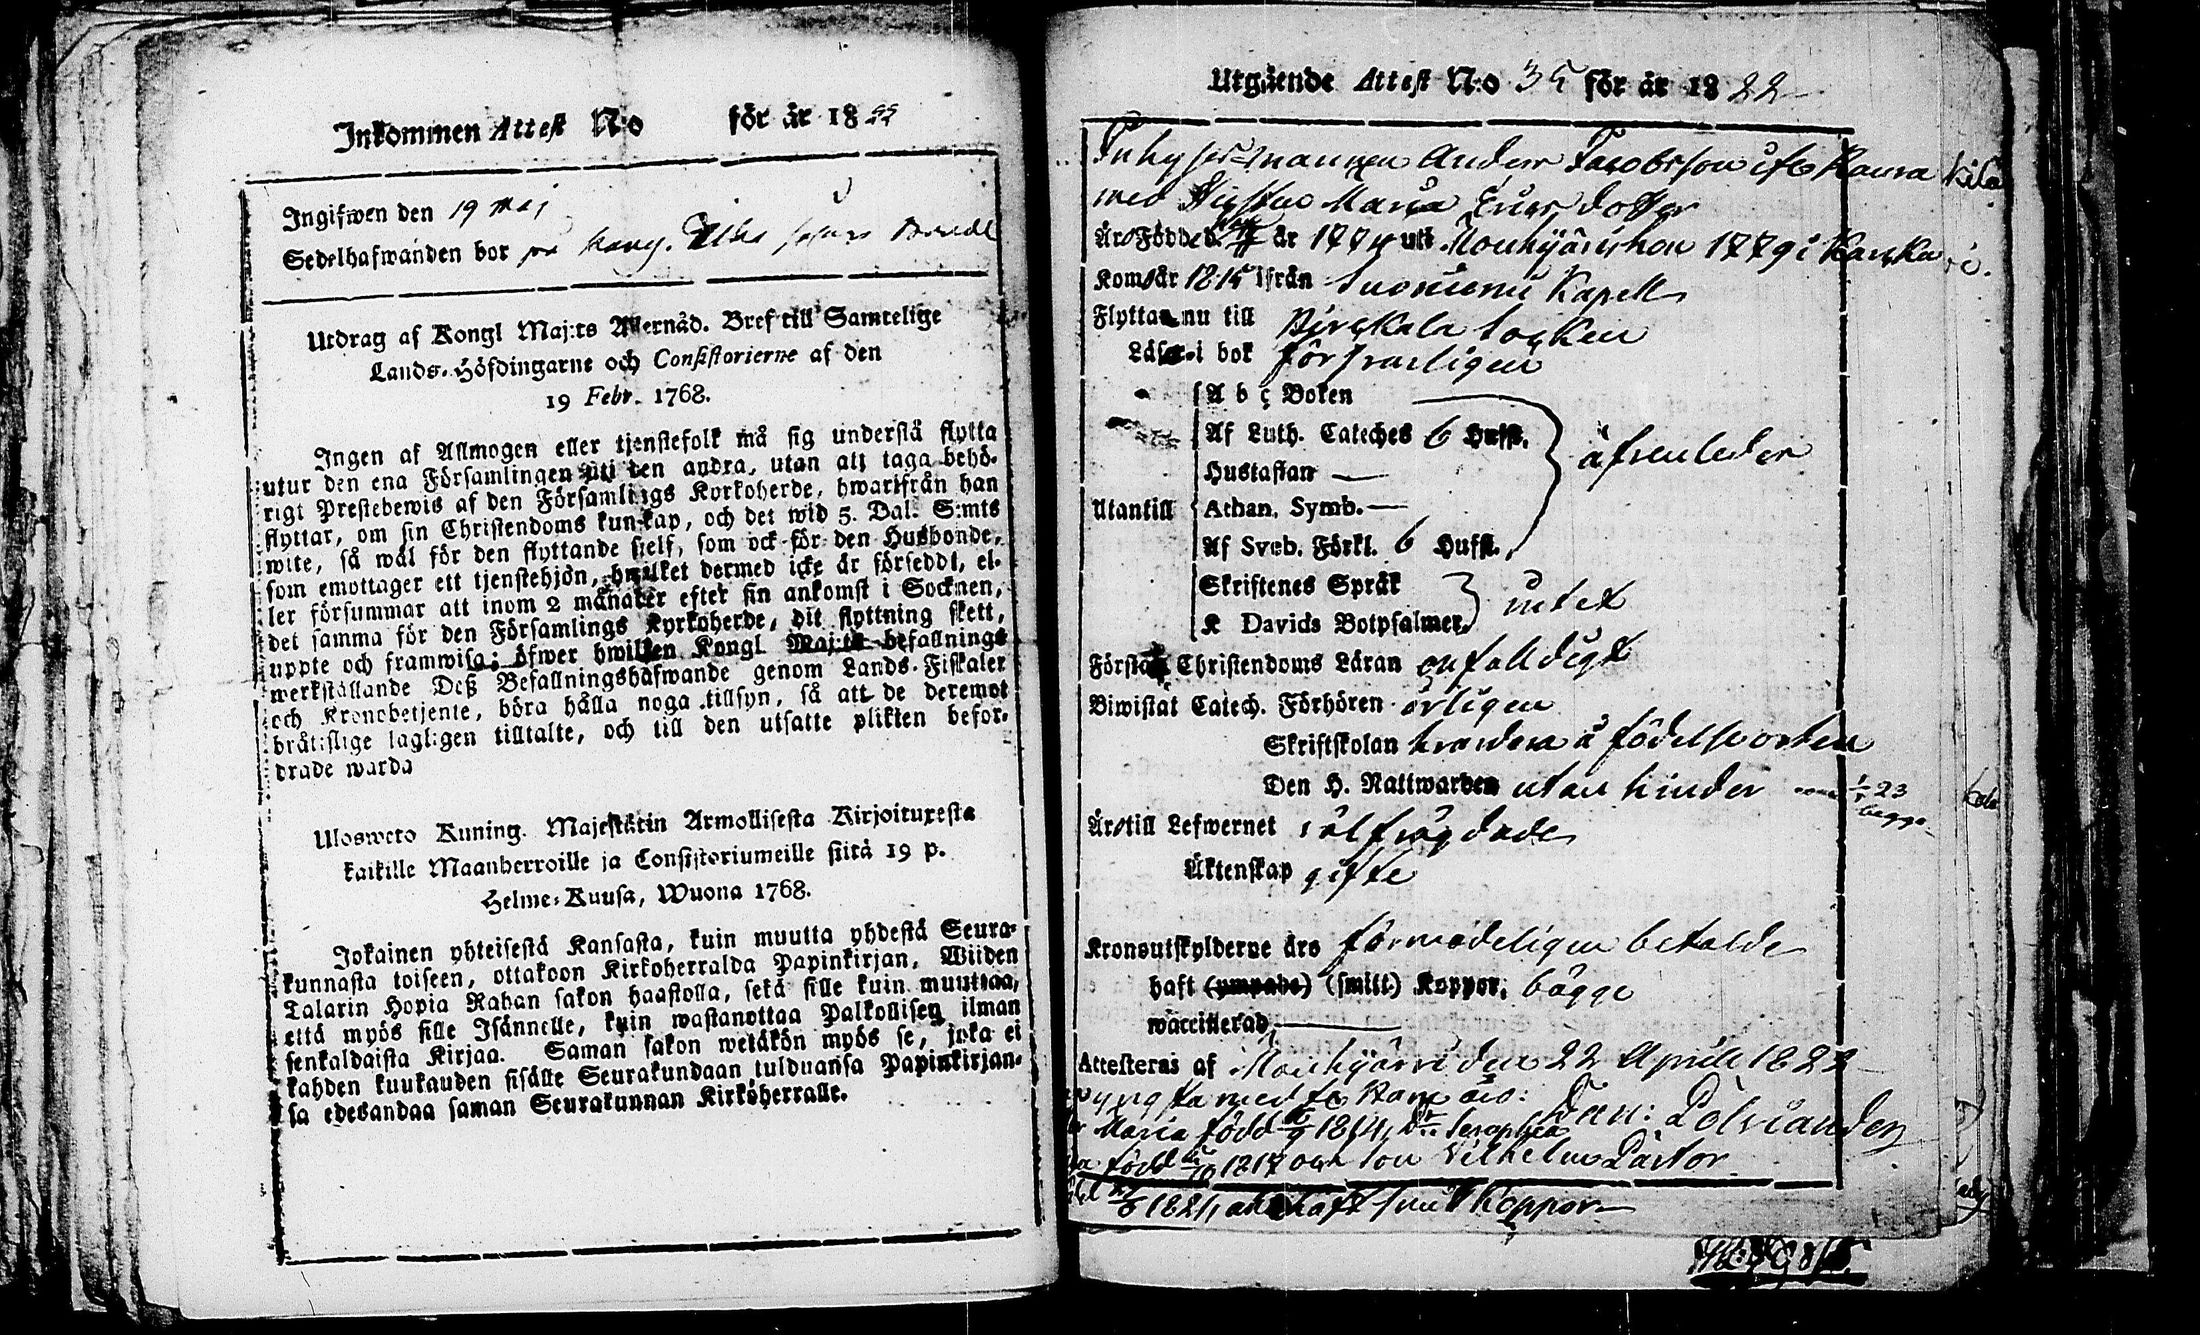 Inkommen Attest N:o för år 1822
Ingifwen den 19 Maj
Sedelhafwanden bor på
Utdrag af Kongl Maj:ts Allernåd. Bref till Samtelige
Lands-Höfdingarne och Consistorierne af den
19 Febr. 1768.
Ingen af Allmogen eller tjenstefolk må sig understå flytta
utur den ena Församlingen uti den andra, utan att taga behö-
rigt Prestebewis af den Församlings Kyrkoherde, hwarifrån han
flyttar, om sin Christendoms kunskap, och det wid 5. Dal. S:mts
wite, så wäl för den flyttande sielf, som ock för den Husbonde,
som emottager ett tjenstehjon, hwilket dermed icke är försedt, el-
ler försummar att inom 2 månader efter sin ankomst i Socknen,
det samma för den Församlings Kyrkoherde, dit flyttning skett,
uppte och framwisa; öfwer hwilken Kongl Maj:ts befallnings
werkställande Deß Befallningshafwande genom Lands-Fiskaler
och Kronobetjente, böra hålla noga tillsyn, så att de deremot
bråtislige lagligen tilltalte, och till den utsatte plikten befor-
drade warda
Uloswcto Kuning. Majestätin Armollisesta Kirjoituxesta
kaikille Maanherroille ja Consistoriumeille siitä 19 p.
Helme-Kuusa, Wuona 1768.
Jokainen yhteisestä Kansasta, kuin muutta yhdestä Seura-
kunnasta toiseen, ottakoon Kirkoherralda Papinkirjan, Wiiden
Talarin Hopia Rahan sakon haastolla, sekä sille kuin muuttaa,
että myös sille Isännelle, kuin wastanottaa Palkollisen ilman
senkaldaista Kirjaa. Saman sakon wetäkön myös se, joka ei
kahden kuukauden sisälle Seurakundaan tulduansa Papinkirjan-
sa edesandaa saman Seurakunnan Kirköherralle.
Utgående Attest N:o 35 för år 1822
Inhyses mannen Anders Jacobsson ifr Kaura kila
med Hustru Maria Ersdotter
Äro Födde är 1774 uti Mouhijärvi hon 1779 i Karkku
Kom år 1815 ifrån Suoniemi Kapell
Flytta nu till Birckala Socken
Läsa i bok försvarligen
Utantill
A b c Boken
Af Luth. Cateches 6 Hufst.
Hustaflan
Athan. Symb.
Af Sveb. Förkl. 6 Hufst.
äfvenledes
Skriftenes Språk
K Davids Botpsalmer
intet
Förstå Christendoms Läran enfalldigt
Biwistat Catech. Förhören årligen
Skriftskolan hvardera å födelseorten
Den H. Nattwarden utan hinder 1/1 23
begge
Äro till Lefwernet välfrägdade
Äktenskap gifte
Kronoutskylderne äro förmodeligen betalde
haft (ympade) (smitt) Koppor, bägge
waccinerad
Attesteras af Mouhijärvi den 22 Aprill 1822
yngsta med fr Barn äro: Dan: Polviander
Maria född 1814, Seraphia
född 1817 och son Vilhelm Pastor
1821, alla haft smitt Koppor